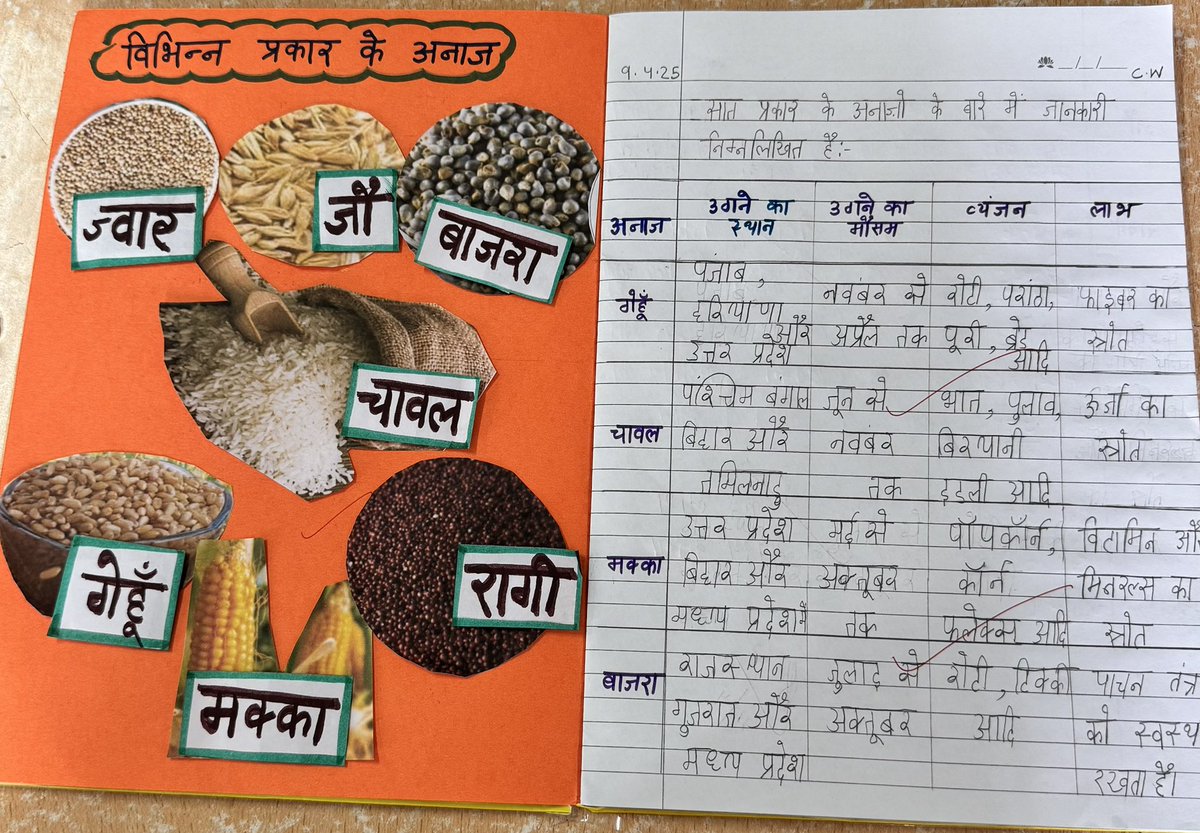 विभिन्न प्रकार के अनाज
ज्वार
जौ
बाजरा
चावल
गेहूँ
रागी
मक्का
9.4.25
_/_/__ C.W
सात प्रकार के अनाजो के बारे में जानकारी
निम्नलिखित है:-
अनाज उगने का स्थान उगने का मौसम व्यंजन लाभ
पंजाब,
गेहूँ हरियाणा नवंबर से रोटी, परांठा, फाइबर का
और अप्रैल तक पूरी, ब्रेड स्त्रोत
उत्तर प्रदेश आदि
पश्चिम बंगाल जून से भात, पुलाव, ऊर्जा का
चावल बिहार और नवंबर बिरयानी स्त्रोत
तमिलनाडु तक इडली आदि
उत्तर प्रदेश मई से पॉपकॉर्न, विटामिन और
मक्का बिहार और अक्तूबर कॉर्न मिनरल्स का
मध्य प्रदेश में तक फ्लेक्स आदि स्त्रोत
बाजरा राजस्थान जुलाई से रोटी, टिक्की पाचन तंत्र
गुजरात और अक्तूबर आदि को स्वस्थ
मध्य प्रदेश रखता है।